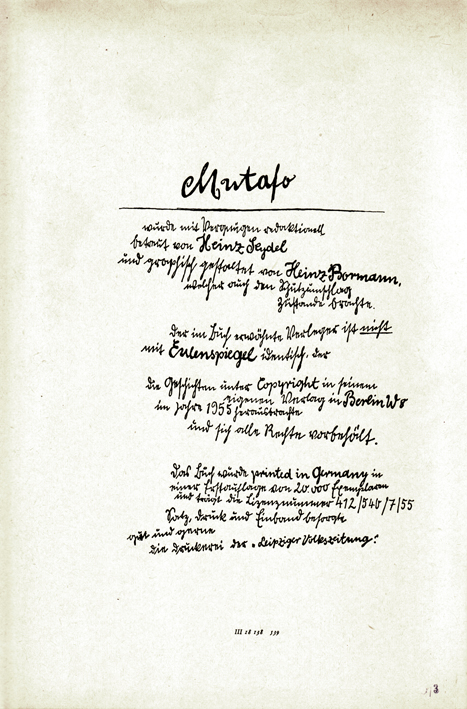 Mutafo
wurde mit Vergnügen redaktionell
betreut von Heinz Seydel
und graphisch gestaltet von Heinz Bormann,
welcher auch den Schutzumschlag
zustande brachte.
Der im Buch erwähnte Verleger ist nicht
mit Eulenspiegel identisch, der
die Geschichten unter Copyright in seinem
eigenen Verlag in Berlin W8
im Jahre 1955 herausbrachte
und sich alle Rechte vorbehält.
Das Buch wurde printed in Germany in
einer Erstauflage von 20.000 Exemplaren
und trägt die Lizenznummer 412/540/7/55
Satz, Druck und Einband besorgte
gut und gerne
die Druckerei der „Leipziger Volkszeitung“.
III 18 138
3